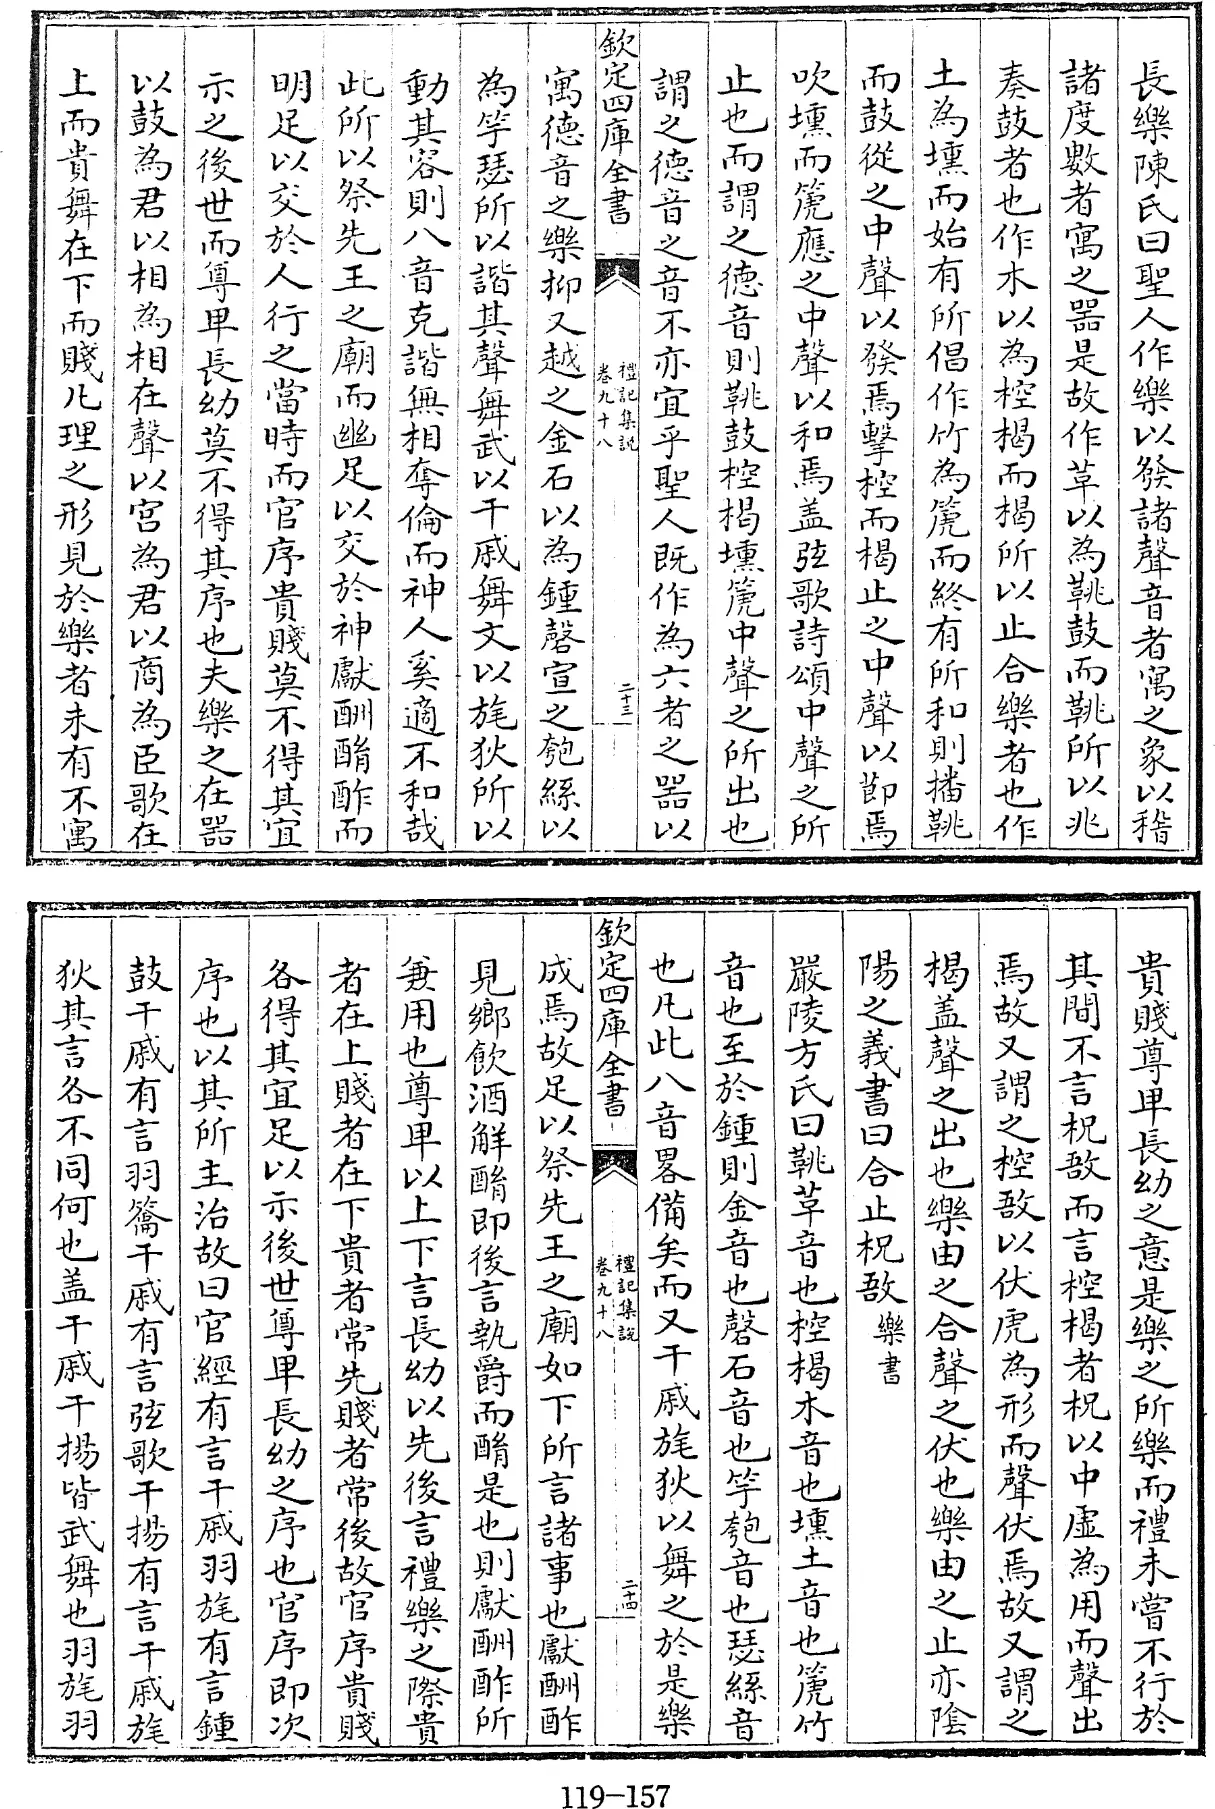 長樂陳氏曰聖人作樂以發諸聲音者寓之象以稽
諸度數者寓之器是故作革以為鞉鼓而鞉所以兆
奏鼓者也作木以為椌楬而楬所以止合樂者也作
土為壎而始有所倡作竹為箎而終有所和則播鞉
而鼓從之中聲以發焉擊椌而楬止之中聲以節焉
吹壎而箎應之中聲以和焉盖弦歌詩頌中聲之所
止也而謂之德音則鞉鼓椌楬壎箎中聲之所出也
謂之德音之音不亦宜乎聖人既作為六者之器以
欽定四庫全書
禮記集說
卷九十八
二十三
寓德音之樂抑又越之金石以為鍾磬宣之匏絲以
為竽瑟所以諧其聲舞武以干戚舞文以旄狄所以
動其容則八音克諧無相奪倫而神人奚適不和哉
此所以祭先王之廟而幽足以交於神獻酬酳酢而
明足以交於人行之當時而官序貴賤莫不得其宜
示之後世而尊卑長幼莫不得其序也夫樂之在器
以鼓為君以相為相在聲以宮為君以商為臣歌在
上而貴舞在下而賤凡理之形見於樂者未有不寓
貴賤尊卑長幼之意是樂之所樂而禮未嘗不行於
其間不言柷敔而言椌楬者柷以中虛為用而聲出
焉故又謂之椌敔以伏虎為形而聲伏焉故又謂之
楬盖聲之出也樂由之合聲之伏也樂由之止亦陰
陽之義書曰合止柷敔 樂書
嚴陵方氏曰鞉革音也椌楬木音也壎土音也箎竹
音也至於鍾則金音也磬石音也竽匏音也瑟絲音
也凡此八音畧備矣而又干戚旄狄以舞之於是樂
欽定四庫全書
禮記集說
卷九十八
二十四
成焉故足以祭先王之廟如下所言諸事也獻酬酢
見鄉飲酒解酳即後言執爵而酳是也則獻酬酢所
兼用也尊卑以上下言長幼以先後言禮樂之際貴
者在上賤者在下貴者常先賤者常後故官序貴賤
各得其宜足以示後世尊卑長幼之序也官序即次
序也以其所主治故曰官經有言干戚羽旄有言鍾
鼓干戚有言羽籥干戚有言弦歌干揚有言干戚旄
狄其言各不同何也盖干戚干揚皆武舞也羽旄羽
119-157